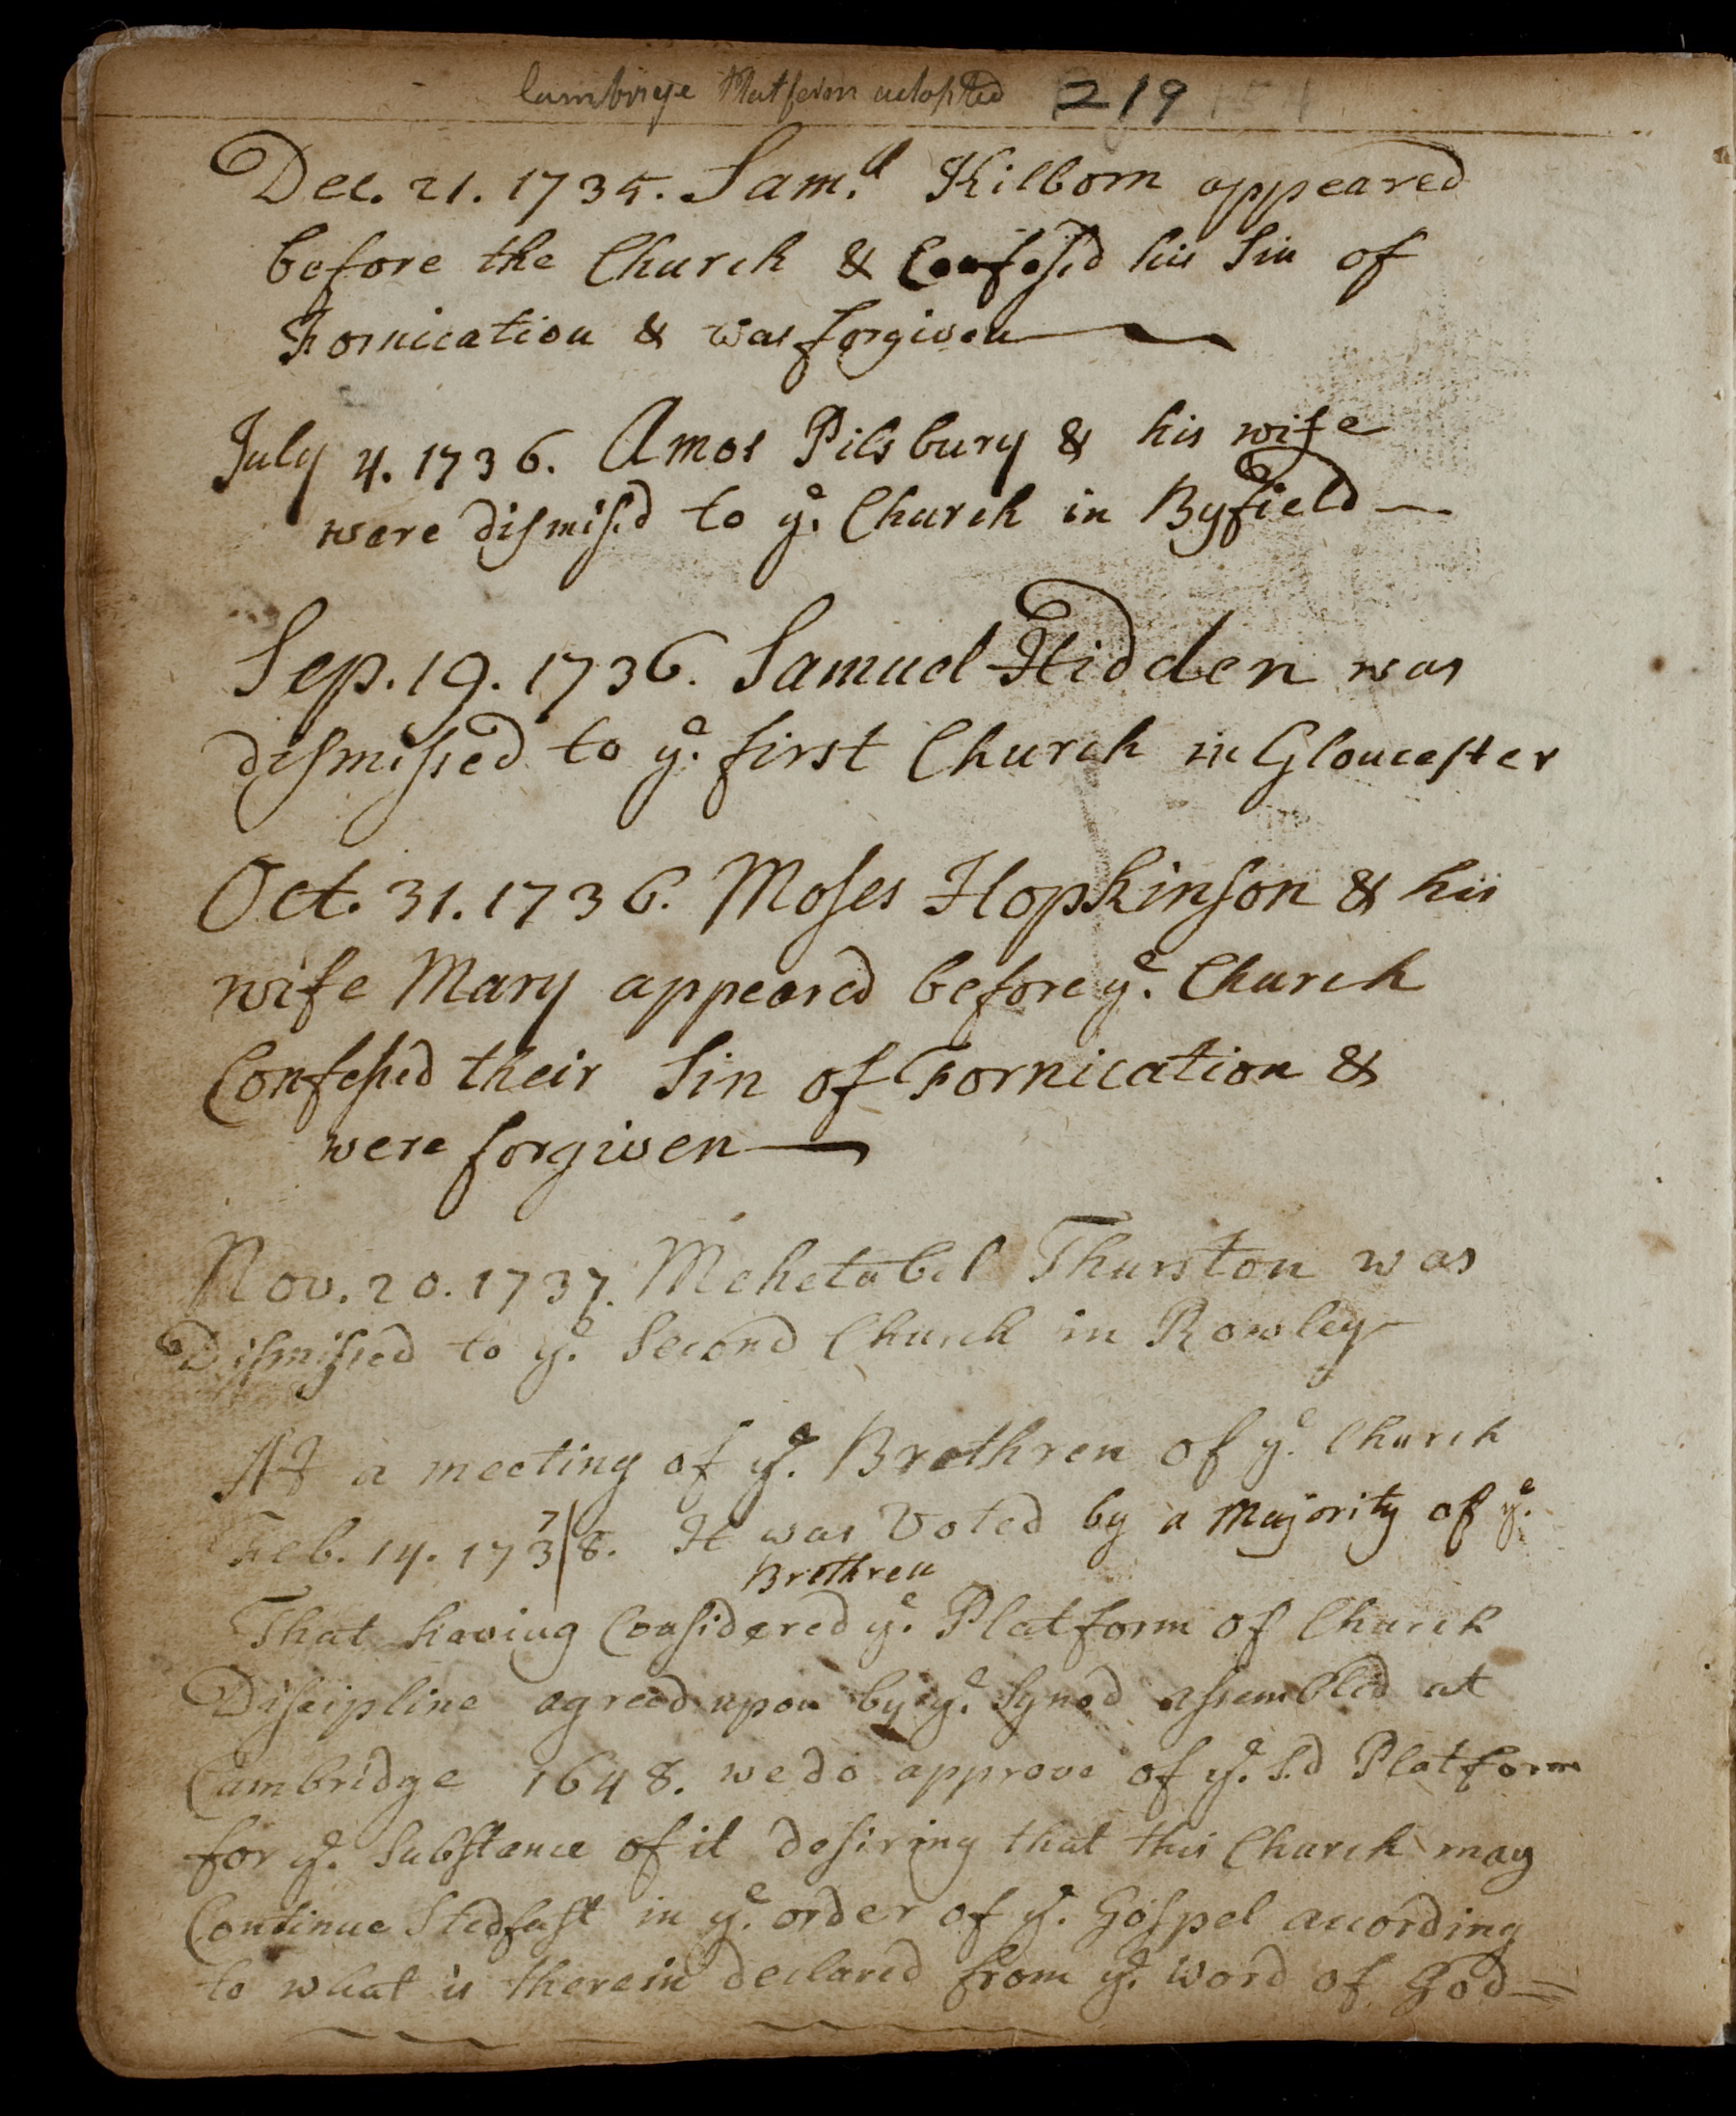 Cambrige Platform adopted 219
Dec. 21. 1735. Sam.ll Kilborn appeared
before the Church & Confessd his Sin of
Fornication & was forgiven
July 4. 1736. Amos Pilsbury & his wife
were dismissd to ye. Church in Byfield
Sep. 19. 1736. Samuel Hidden was
dismissed to ye. first Church in Gloucester
Oct. 31. 1736. Moses Hopkinson & his
wife Mary appeared before ye. Church
Confessed their Sin of Fornication &
were forgiven
Nov. 20. 1737. Mehetabel Thurston was
Dismissed to ye. Second Church in Rowley
At a meeting of ye. Brethren of ye. Church
Feb. 14. 173 7/8. It was Voted by a Majority of ye.
Brethren
That having Considered ye. Platform of Church
Discipline agreed upon by ye. Synod assembled at
Cambridge 1648. we do approve of ye. Sd Platform
for ye. Substance of it desiring that this Church may
Continue Stedfast in ye. order of ye. Gospel according
to what is therein declared from ye. word of God